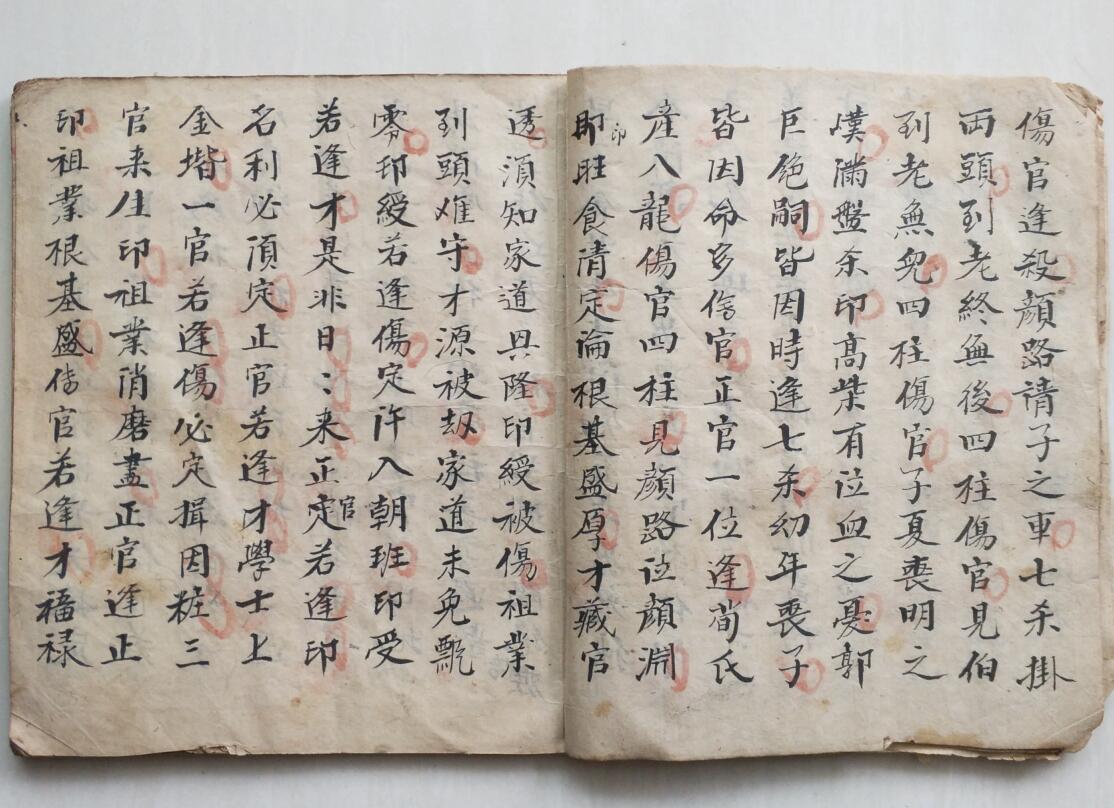 傷官逢殺顔路請子之車七杀掛
両頭到老終無後四柱傷官見伯
到老無兒四柱傷官子夏喪明之
嘆滿盤杀印髙柴有泣血之憂郭
巨絶嗣皆因時逢七杀幻年喪子
皆因命多傷官正官一位逢荀氏
産八龍傷官四柱見顔路泣顔淵
即印旺食清定論根基盛厚才藏官
透須知家道具隆印綬被傷祖業
到頭难守才源被刼家道未免飄
零印綬若逢傷定許入朝班印受
若逢才是非日：来正定官若逢印
名利必項定正官若逢才學士上
金堦一官若逢傷必定揖因粧三
官来生印祖業消磨盡正官逢止
印祖業根基盛傷官若逢才福禄